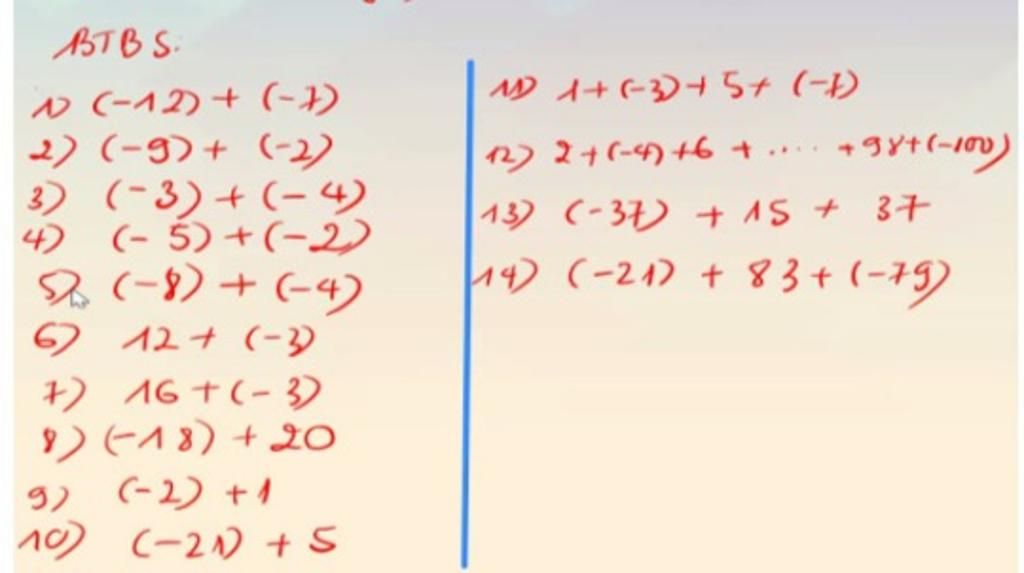 BTBS:
1) (-12) + (-7)
2) (-9) + (-2)
3) (-3) + (-4)
4) (-5) + (-2)
5) (-8) + (-4)
6) 12 + (-3)
7) 16 + (-3)
8) (-18) + 20
9) (-2) + 1
10) (-21) + 5
11) 1 + (-3) + 5 + (-7)
12) 2 + (-4) + 6 + .... + 98 + (-100)
13) (-37) + 15 + 37
14) (-21) + 83 + (-79)